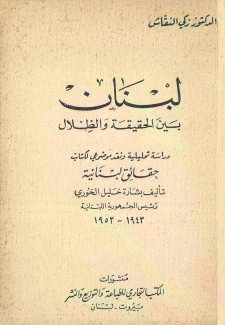 الدكتور زكي النقاش
لبنان
بين الحقيقة والظلال
دراسة تحليلية ونقد موضوعي لكتاب
حقائق لبنانية
تأليف بشارة خليل الخوري
رئيس الجمهورية اللبنانية
١٩٤٣ - ١٩٥٢
منشورات
المكتب التجاري للطباعة والتوزيع والنشر
بيروت - لبنان